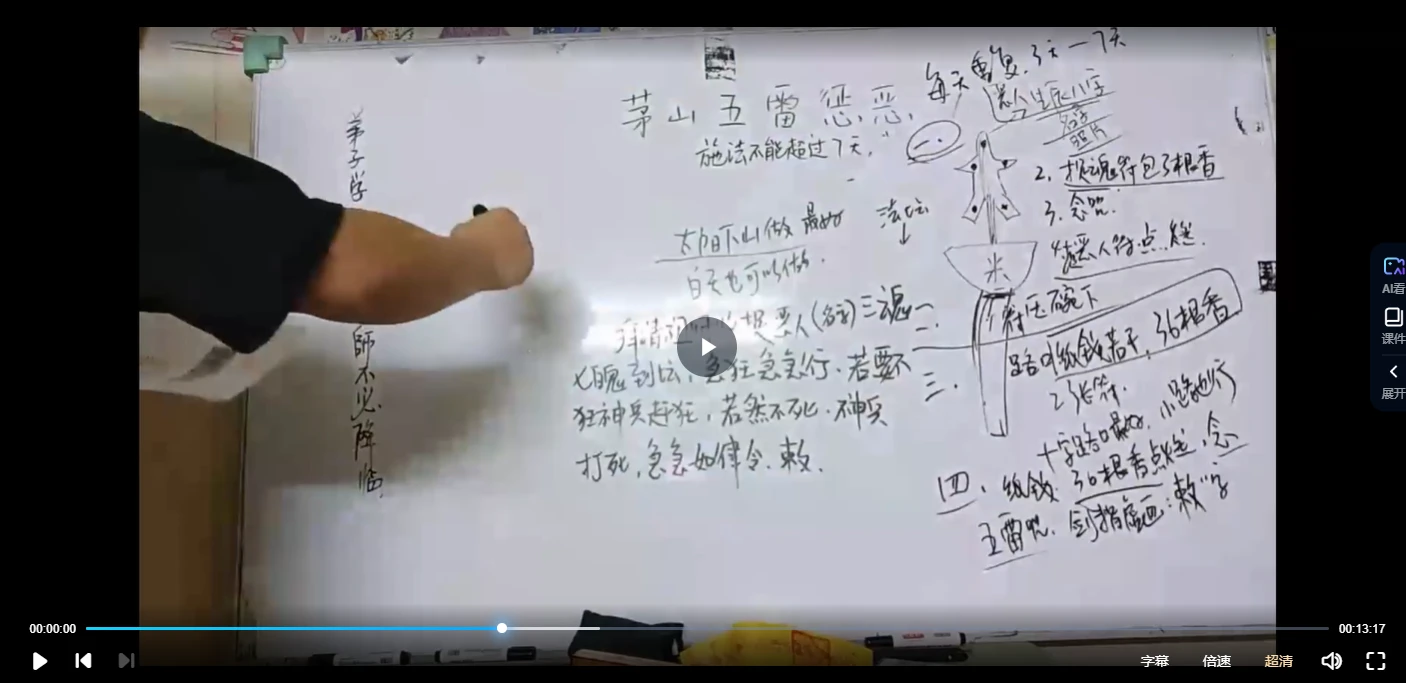 弟子学
師不必降臨
茅山五雷惩恶
施法不能超过7天
太阳下山做 最好
白天也可以做
法坛
拜请
恶人(名字)三魂
七魄到坛,急狂急急行.若要不
狂神兵赶狂,若然不死.神兵
打死,急急如律令.敕.
每天重复.3天一7天
恶人生辰八字
名字
照片
一.
2. 招魂符包3根香
3. 念咒.
烧恶人符点燃.
米
符压碗下
二.
三.
路口纸钱若干,36根香
2张符.
十字路口最好,小路也行
四.纸钱 36根香点燃,念
五雷咒.剑指虚画:敕"字
AI看
课件
展开
00:00:00
00:13:17
字幕
倍速
超清